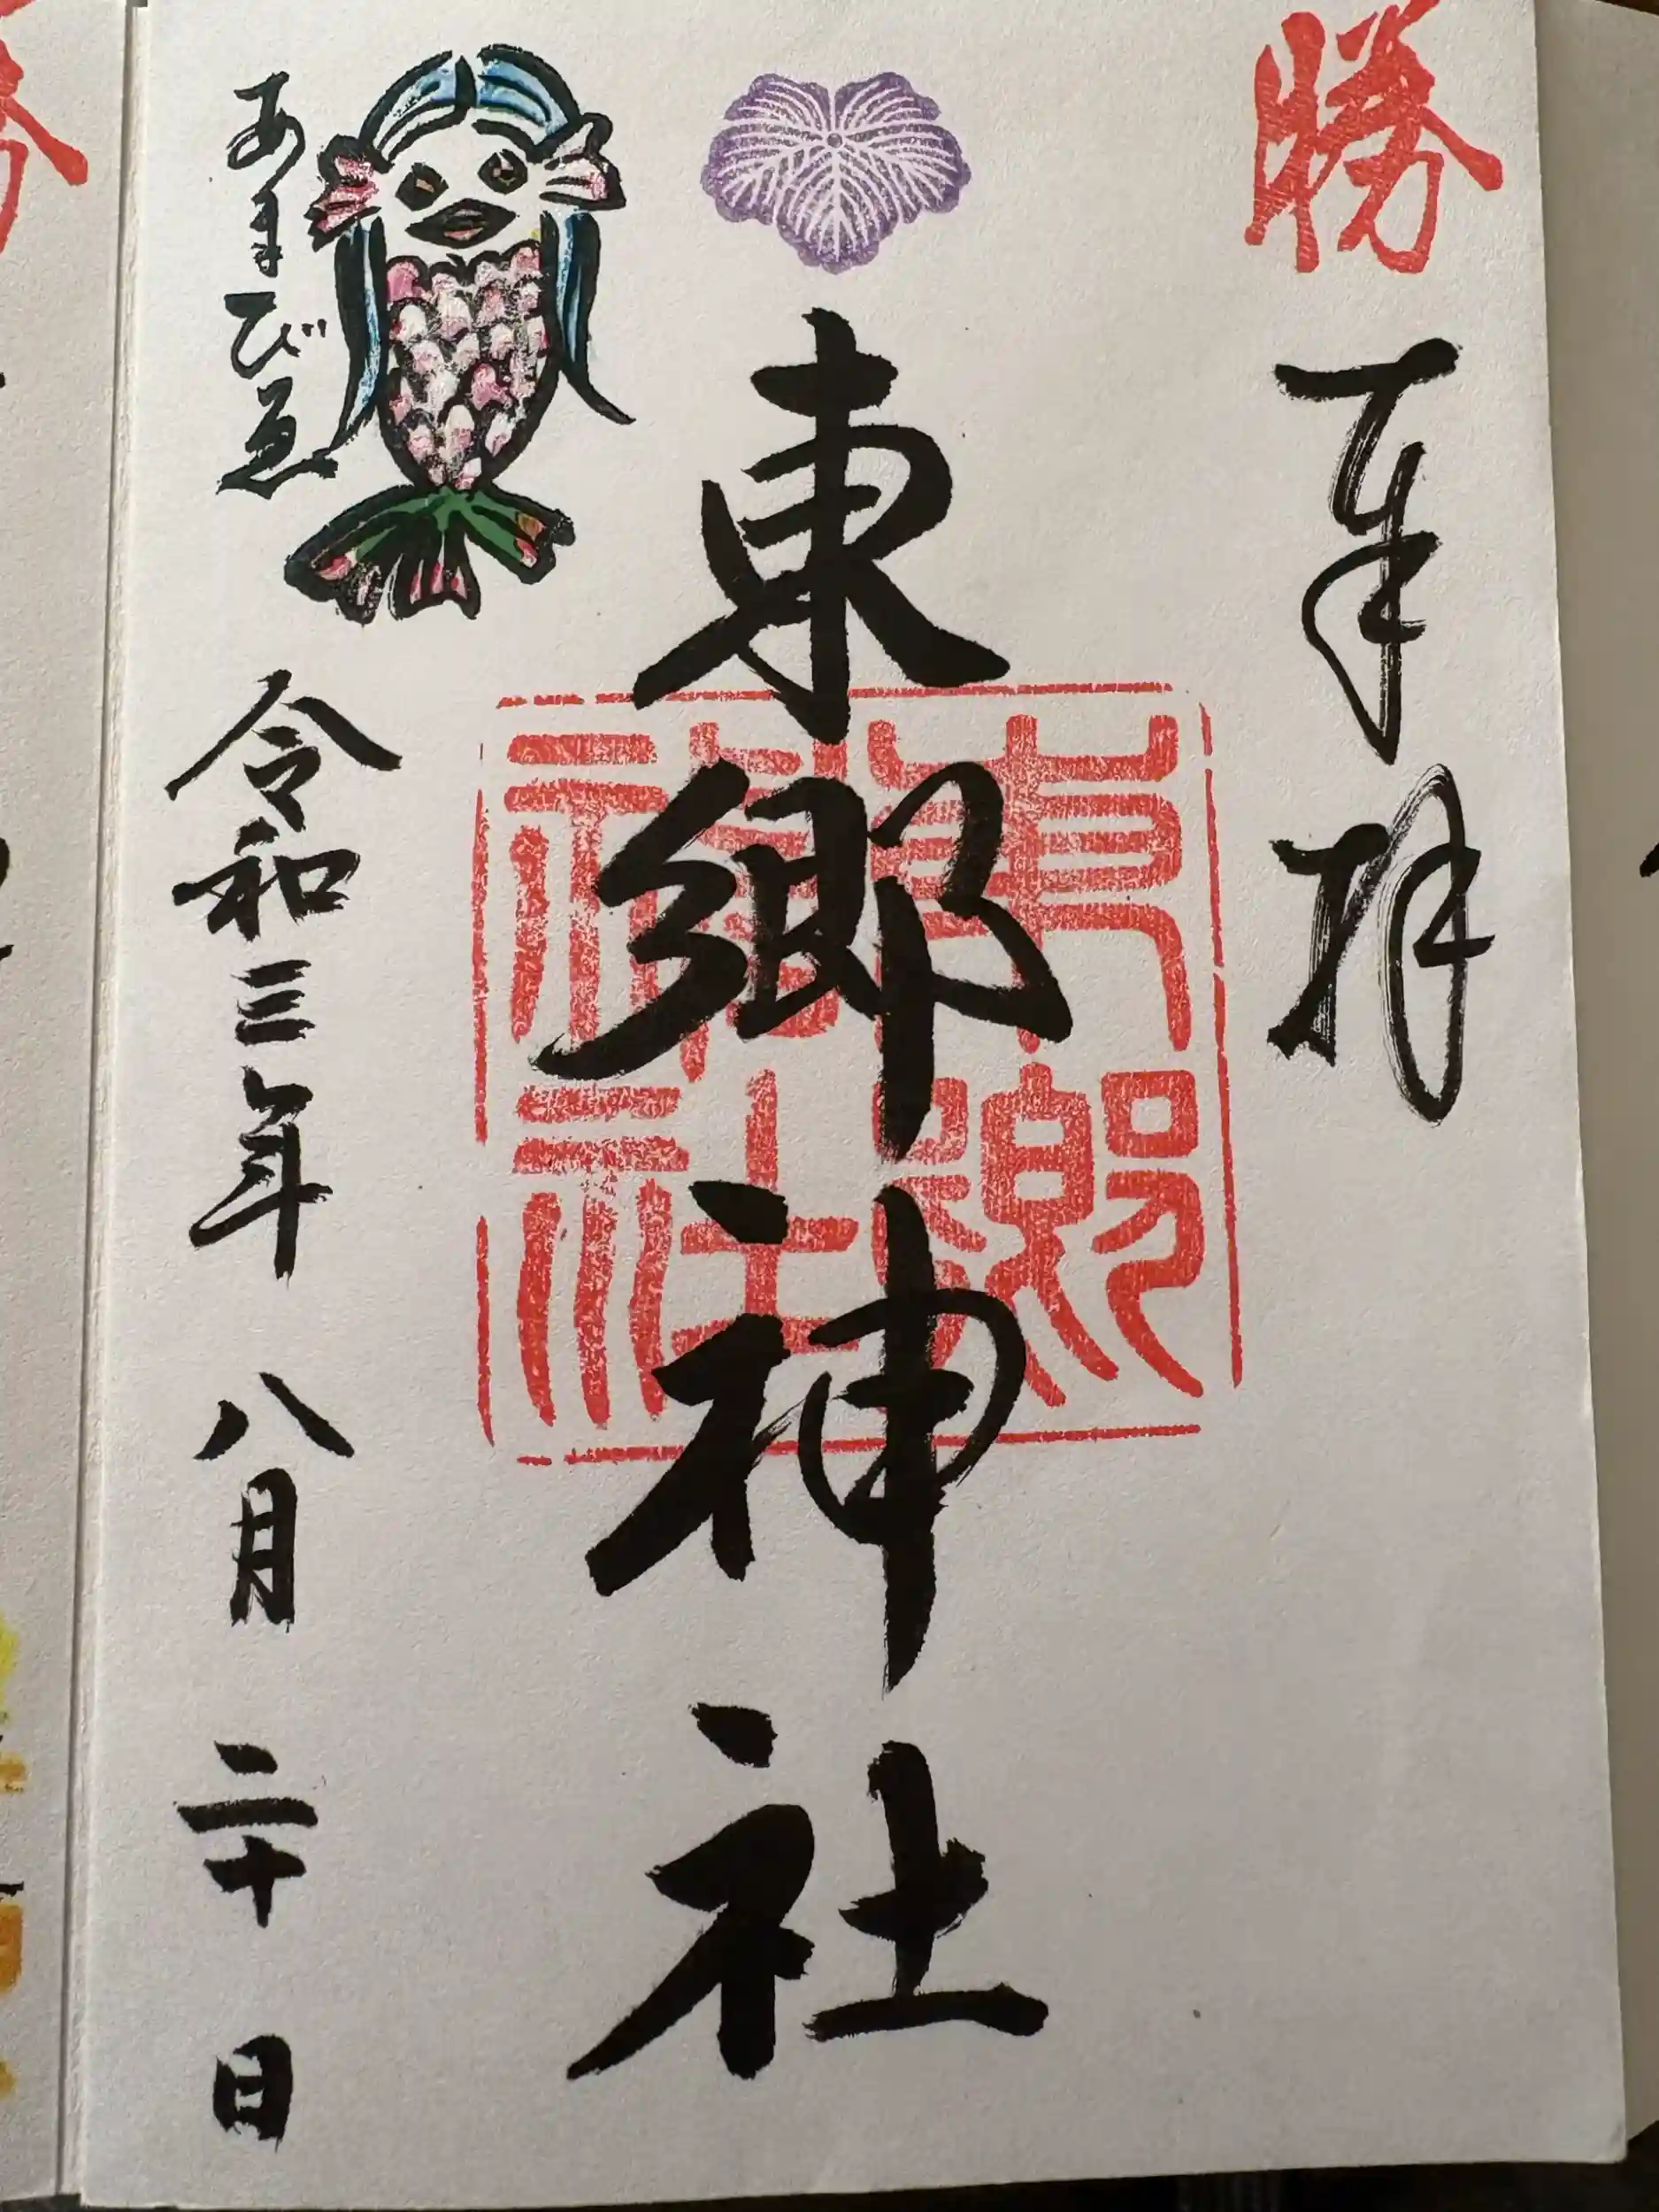 勝
奉拝
東郷神社
東郷神社
あまびゑ
令和三年八月二十日